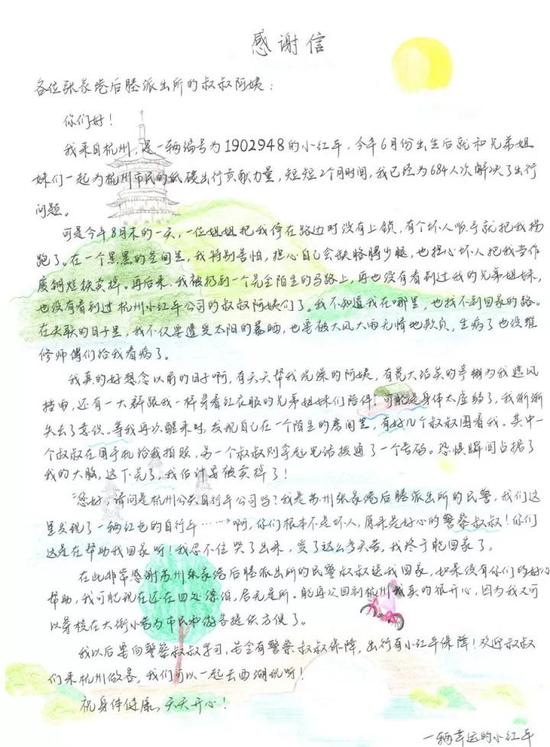 感谢信
各位张家港后塍派出所的叔叔阿姨：
你们好！
我来自杭州，是一辆编号为1902948的小红车，今年6月份出生后就和兄弟姐
妹们一起为杭州市民的低碳出行贡献力量，短短2个月时间，我已经为684人次解决了出行
问题。
可是今年8月末的一天，一位姐姐把我停在路边时没有上锁，有个坏人顺手就把我拐
跑了。在一个黑黑的空间里，我特别害怕，担心自己会缺胳膊少腿，也担心坏人把我当作
废铜烂铁卖掉，再后来，我被扔到一个完全陌生的马路上，再也没有看到过我的兄弟姐妹，
也没有看到过杭州小红车公司的叔叔阿姨们了。我不知道我在哪里，也找不到回家的路。
在失联的日子里，我不仅要遭受太阳的暴晒，也要被大风大雨无情地欺负，生病了也没维
修师傅们给我看病了。
我真的好想念以前的日子啊，有天天帮我洗澡的阿姨，有宽大结实的车棚为我遮风
挡雨，还有一大群跟我一样穿着红衣服的兄弟姐妹们陪伴！可能是身体太虚弱了，我渐渐
失去了意识。等我再次醒来时，发现自己在一个陌生的房间里，有好几个叔叔围着我。其中一
个叔叔在用手机给我拍照，另一个叔叔则拿起电话拨通了一个号码。恐惧瞬间占据了
我的大脑，这下完了，我估计要被卖掉了！
“您好，请问是杭州公共自行车公司吗？我是苏州张家港后塍派出所的民警，我们这
里发现了一辆红色的自行车……”啊，你们根本不是坏人，原来是好心的警察叔叔！你们
这是在帮助我回家呀！我忍不住哭了出来，受了这么多天苦，我终于能回家了。
在此非常感谢苏州张家港后塍派出所的民警叔叔送我回家，如果没有你们的好心
帮助，我可能现在还在四处漂泊，居无定所。能再次回到杭州我真的很开心，因为我又可
以穿梭在大街小巷为市民和游客提供方便了。
我以后要向警察叔叔学习，若会有警察叔叔保障，出行有小红车保障！欢迎叔叔
们来杭州做客，我们可以一起去西湖玩呀！
祝身体健康，天天开心！
一辆幸运的小红车